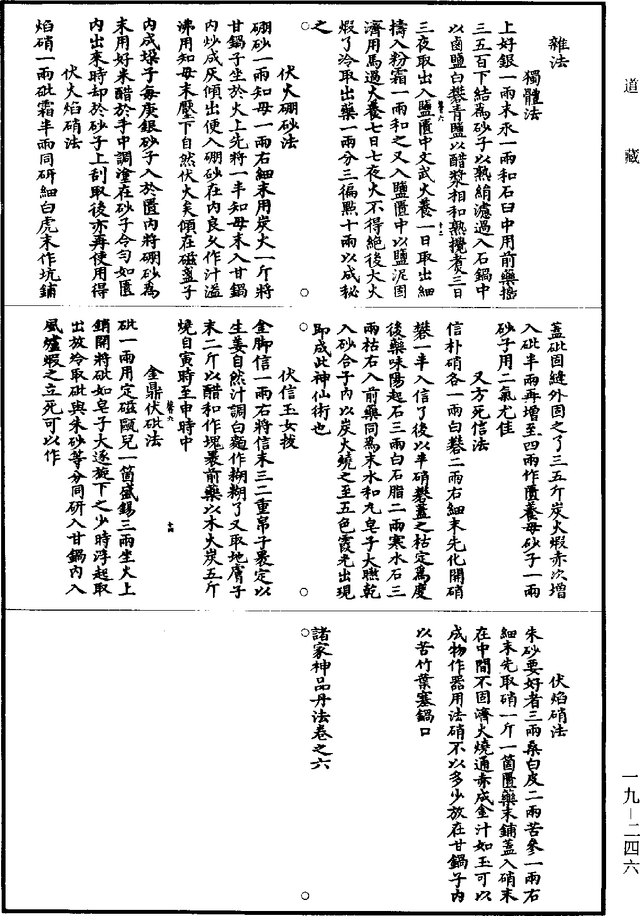 道藏
雜法
獨體法
上好銀一兩末汞一兩和石臼中用前藥搗
三五百下結為砂子以熟絹濾過入石鍋中
以鹵鹽白礬青鹽以醋漿相和熱攪煑三日
三夜取出入鹽匱中文武火養一日取出細
擣入粉霜一兩和之又入鹽匱中以鹽泥固
濟用馬通火養七日七夜火不得絕後大火
煅了冷取出藥一兩分三徧點十兩以成秘
之
伏火硼砂法
硼砂一兩知母一兩右細末用炭火一斤將
甘鍋子坐於火上先將一半知母末入甘鍋
內炒成灰傾出便入硼砂在內良久作汁溢
沸用知母末壓下自然伏火矣傾在磁盞子
內成垛子每庚銀砂子入於匱內將硼砂為
末用好米醋於手中調塗在砂子令勻如匱
內出來時却於砂子上刮取後亦再使用得
伏火焰硝法
焰硝一兩砒霜半兩同研細白虎末作坑鋪
蓋砒固縫外固之了三五斤炭火煅赤次增
入砒半兩再增至四兩作匱養母砂子一兩
砂子用二氣尤佳
又方死信法
信朴硝各一兩白礬二兩右細末先化開硝
礬一半入信了後以半硝礬蓋之枯定為度
後藥味陽起石三兩白石脂二兩寒水石三
兩枯右入前藥同為末水和丸皂子大曬乾
入砂合子內以炭火燒之至五色霞光出現
即成此神仙術也
伏信玉女拔
金脚信一兩右將信末三二重帛子裹定以
生姜自然汁調白麵作糊糊了又取地膚子
末二斤以醋和作塊裹前藥以木火炭五斤
燒自寅時至申時中
金鼎伏砒法
砒一兩用定磁甌兒一箇盛錫三兩坐火上
銷開將砒如皂子大逐旋下之少時浮起取
出放冷取砒與朱砂等分同研入甘鍋內入
風爐煅之立死可以作
伏焰硝法
朱砂要好者三兩桑白皮二兩苦參一兩右
細末先取硝一斤一箇匱藥末鋪蓋入硝末
在中間不固濟火燒通赤成金汁如玉可以
成物作器用法硝不以多少放在甘鍋子內
以苦竹葉塞鍋口
諸家神品丹法卷之六
一九－二四六